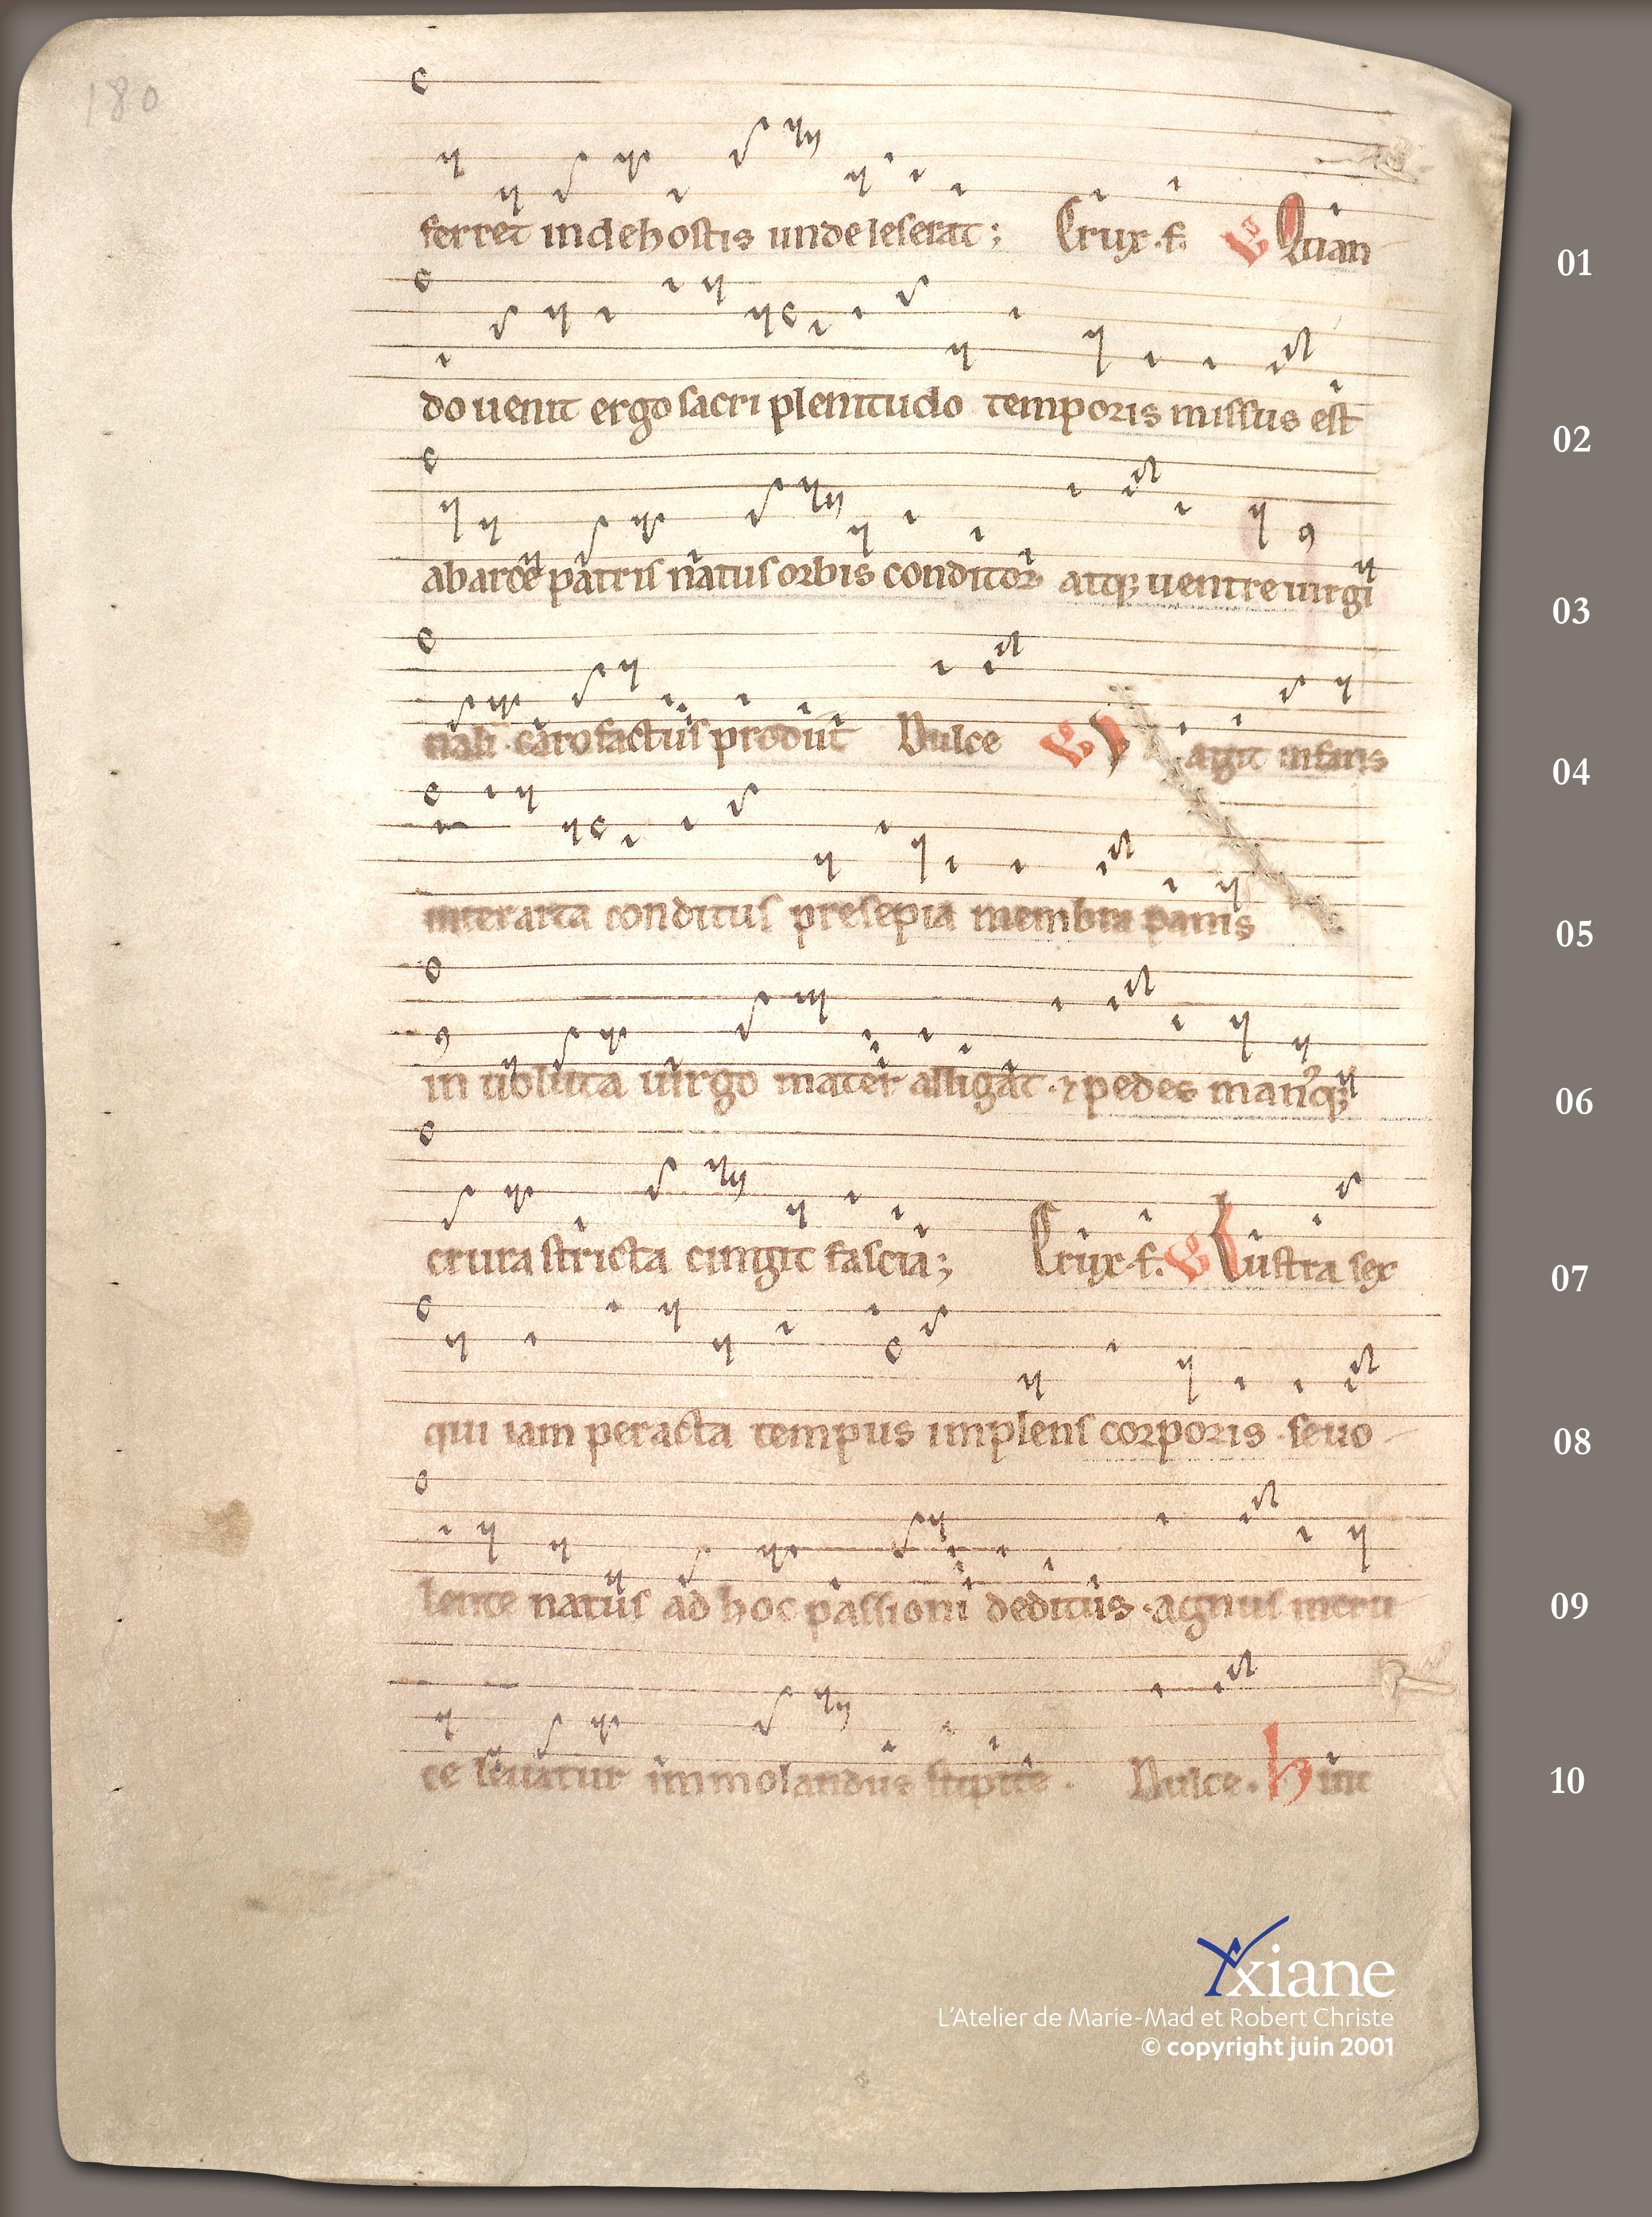 180
ferret inde hostis unde leserat; Crux. f. Quan 01
do uenit ergo sacri plenitudo temporis missus est 02
ab arce patris natus orbis conditor atq; uentre uirgi 03
nali caro factus prodiit Dulce agit infans 04
inter arta conditus presepia membra pannis 05
in uoluta uirgo mater alligat. & pedes manusq; 06
crura stricta cingit fascia; Crux. f. Lustra sex 07
qui iam peracta tempus implens corporis. seuo 08
lente natus ad hoc passioni deditus. agnus in cru 09
ce leuatur immolandus stipite. Dulce. hinc 10
Yxiane
L'Atelier de Marie-Mad et Robert Christe
© copyright juin 2001